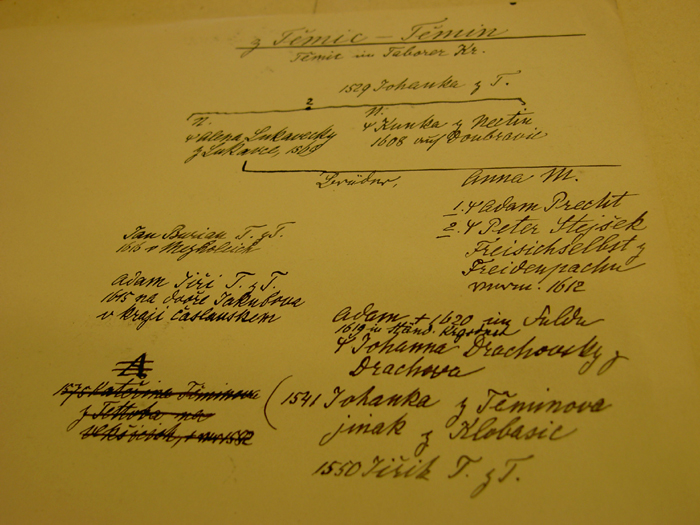 z Těmic – Těmin
Těmic im Taborer Kr.
1529 Johanka z T.
2
N.
Alena Lukavecky
z Lukavec, 1569
N.
Kunka z Nectin
1608 auf Doubravic
Brüder,
Anna M.
1. Adam Precht
2. Peter Stejšek
Freisichselbst z
Freidenpachu
verw. 1612
Jan Burian T. z T.
1615 v Mezholesích
Adam Jiří T. z T.
1615 na dvoře Jakubova
v kraji čáslavskem
Adam + 1620 im Fulda
1619 in Ständ.
Johanna Drachovsky z
Drachova
A
1575 Kateřina Těminova
z Těchoba na
(1541 Johanka z Těminova
jinak z Klobasic
1550 Jiřik T. z T.